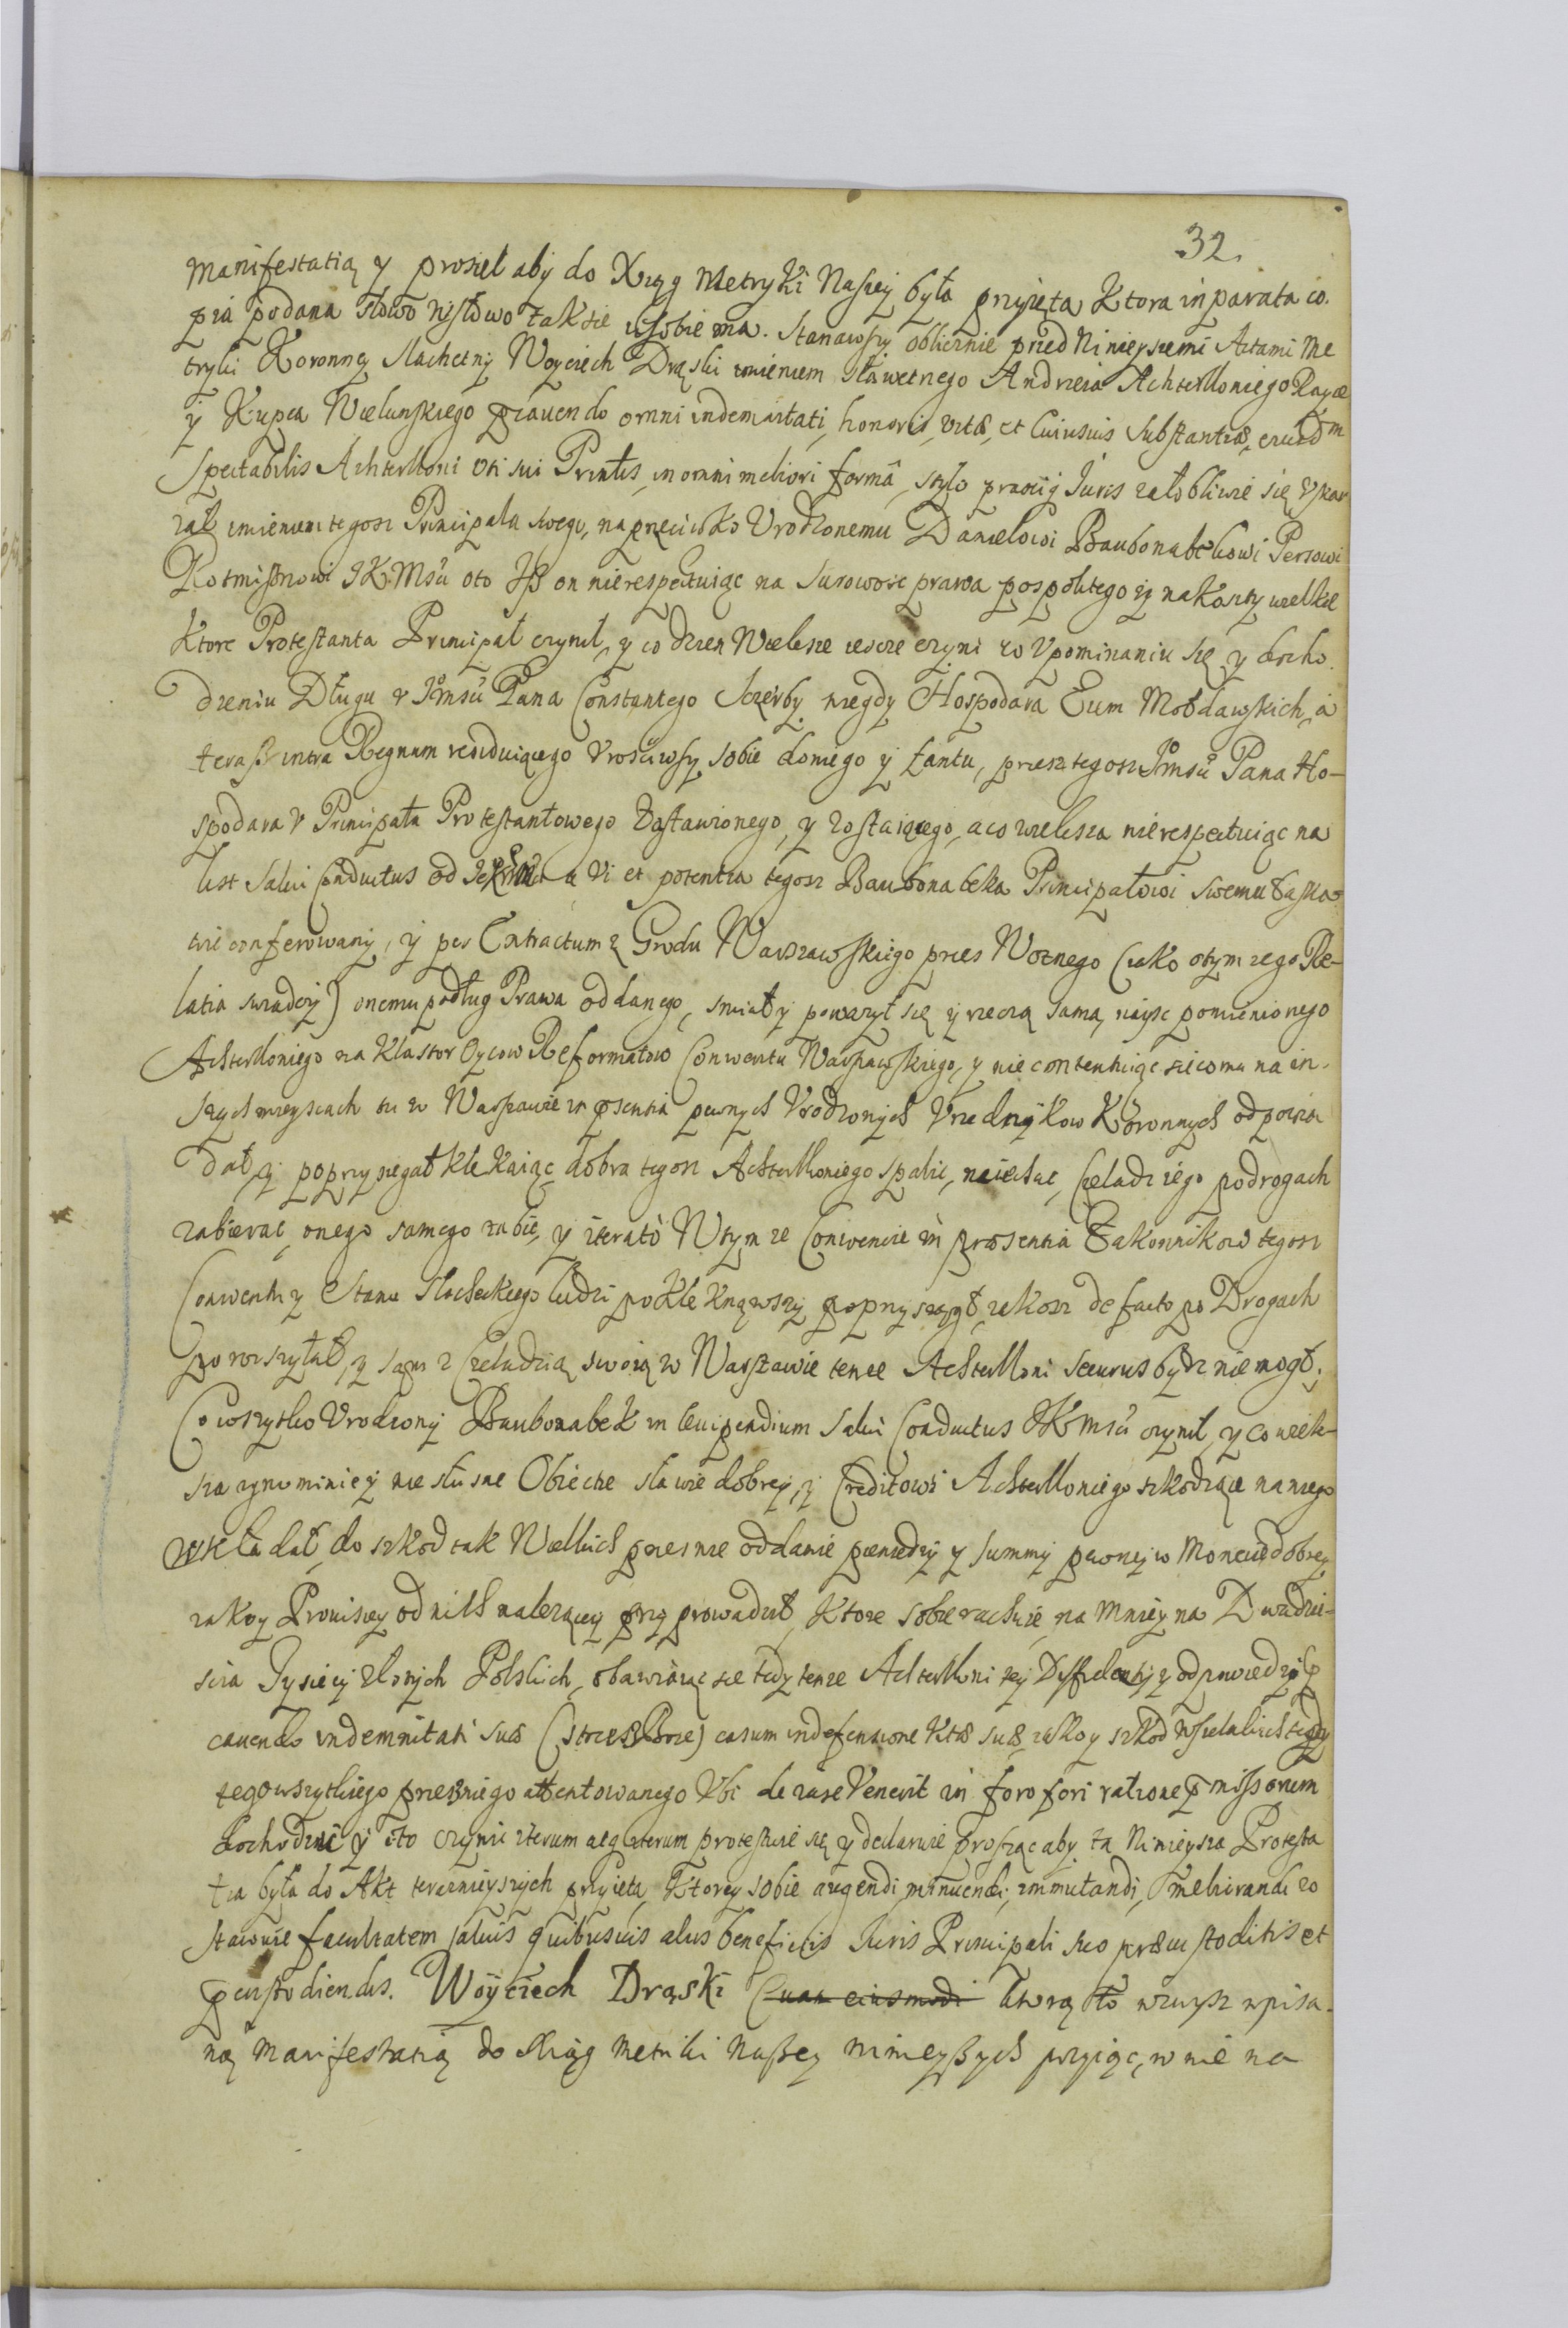 32.
Manifestatią y prosieł aby do Xziąg Metryki Naszey była przyięta Ktora in parata co.
pia podana słowo wsłowo tak sie wsobie ma. Stanąwszy oblicznie przed Ninieyszemi Actami Me
tryki Koronney Slachetny Woyciech Drąski imieniem sławetnego Andrzeia Achterlloniego Rayce
y Kupca Wielunskiego præcavendo omni indemnitati, honoris, vitæ, et Cuiusvis Substantiæ, eiusdem
Spectabilis Achterlloni uti sui Prinlis, in omni meliori formâ, stylo praxiq Iuris załobliwie się vskar
zał imieniem tegosz Principała swego, naprzeciwko Vrodzonemu Danielowi Baubonabekowi Persowi
Rotmistrzowi JKMsci oto Iß on nierespectuiąc na Surowosc prawa pospolitego y na koszty wielkie
Ktore Protestanta Principał czynił, y co dzien Wieksze iescze czyni w Vpominaniu się y docho.
dzeniu Długu v Jmsci Pana Constantego Sczerby niegdy Hospodara Ziem Mołdawskich, a
teraß intra Regnum residuiącego Vrosciwszy sobie do niego y fantu, przesz tegosz Jmsci Pana Ho-
spodara v Principała Protestantowego Zastawionego, y zostaiącego, a co wieksza nierespectuiąc na
list Salvi Conductus od a Vi et potentia tegosz Baubonabeka Principałowi swemu Łaska-
wie conferowany, y per Extractum z Grodu Warszawskiego przes Woznego (iako otym iego Re-
latia swiadczy) onemu podług Prawa oddanego, smiał y powazył się y rzeczą samą naysc pomienionego
Achterlloniego na Klasztor Oycow Reformatow Conventu Warszawskiego, y nie contentuiąc sie na in-
szych mieyscach tu w Warszawie in psentia pewnych Vrodzonych Vrzednykow Koronnych odpowia
dał, y poprzysiegał klekaiąc dobra tegosz Achterlloniego spalic, naiechac, Czeladz iego po drogach
zabierac, onego samego zabic, y iterato W tym ze Conwencie in præsentia Zakonnikow tegosz
Conventu y Stanu Slacheckiego ludzi poklęknąwszy poprzysiągł, iakosz de facto po Drogach
porozsyłał, y sam z Czeladzią swoią w Warszawie tenze Achterlloni securus bydz nie mogł.
Co wszytko Vrodzony Baubonabek in levipendium Salvi Conductus JKMsci czynił, y co wiek-
sza niesłusne Obiekcie sławie dobrey, y Creditowi Achterlloniego szkodzące na niego
wkładał, do szkod tak Wielkich przes nie oddanie pieniedzy y summy pewney w Moncie dobrey
iakoy Prowisiey od nich nalezącey przyprowadził, Ktore sobie rachuie, na mniey na Dwadzie-
scia Tysięcy złotych Polskich, obawiaiąc sie tedy tenze Achterlloni tey y odpowiedzi p
cavendo indemnitati suæ (strzesz Boze) casum in defensione Vitæ suæ, iako y szkod wszelakich tedy
tego wszytkiego przes niego attentowanego Vbi de iure Venerit in foro fori ratione p missorum
dochodzic y to czynic iterum atq iterum protestuie się y declaruie prosząc aby ta Ninieysza Protesta
tia była do Akt teraznieyszych przyieta, Ktorey sobie augendi, minuendi, immutandi, meliorandi zo
stawuie facultatem salvis quibusvis aliis beneficiis Iuris Principali suo præcustoditis et
p custodiendis. Woyciech Drąski ktorą to wzwysz wpisa.
ną Manifestatią do Xiąg Metriki Naßey ninieyßych przyiąc, w nie na